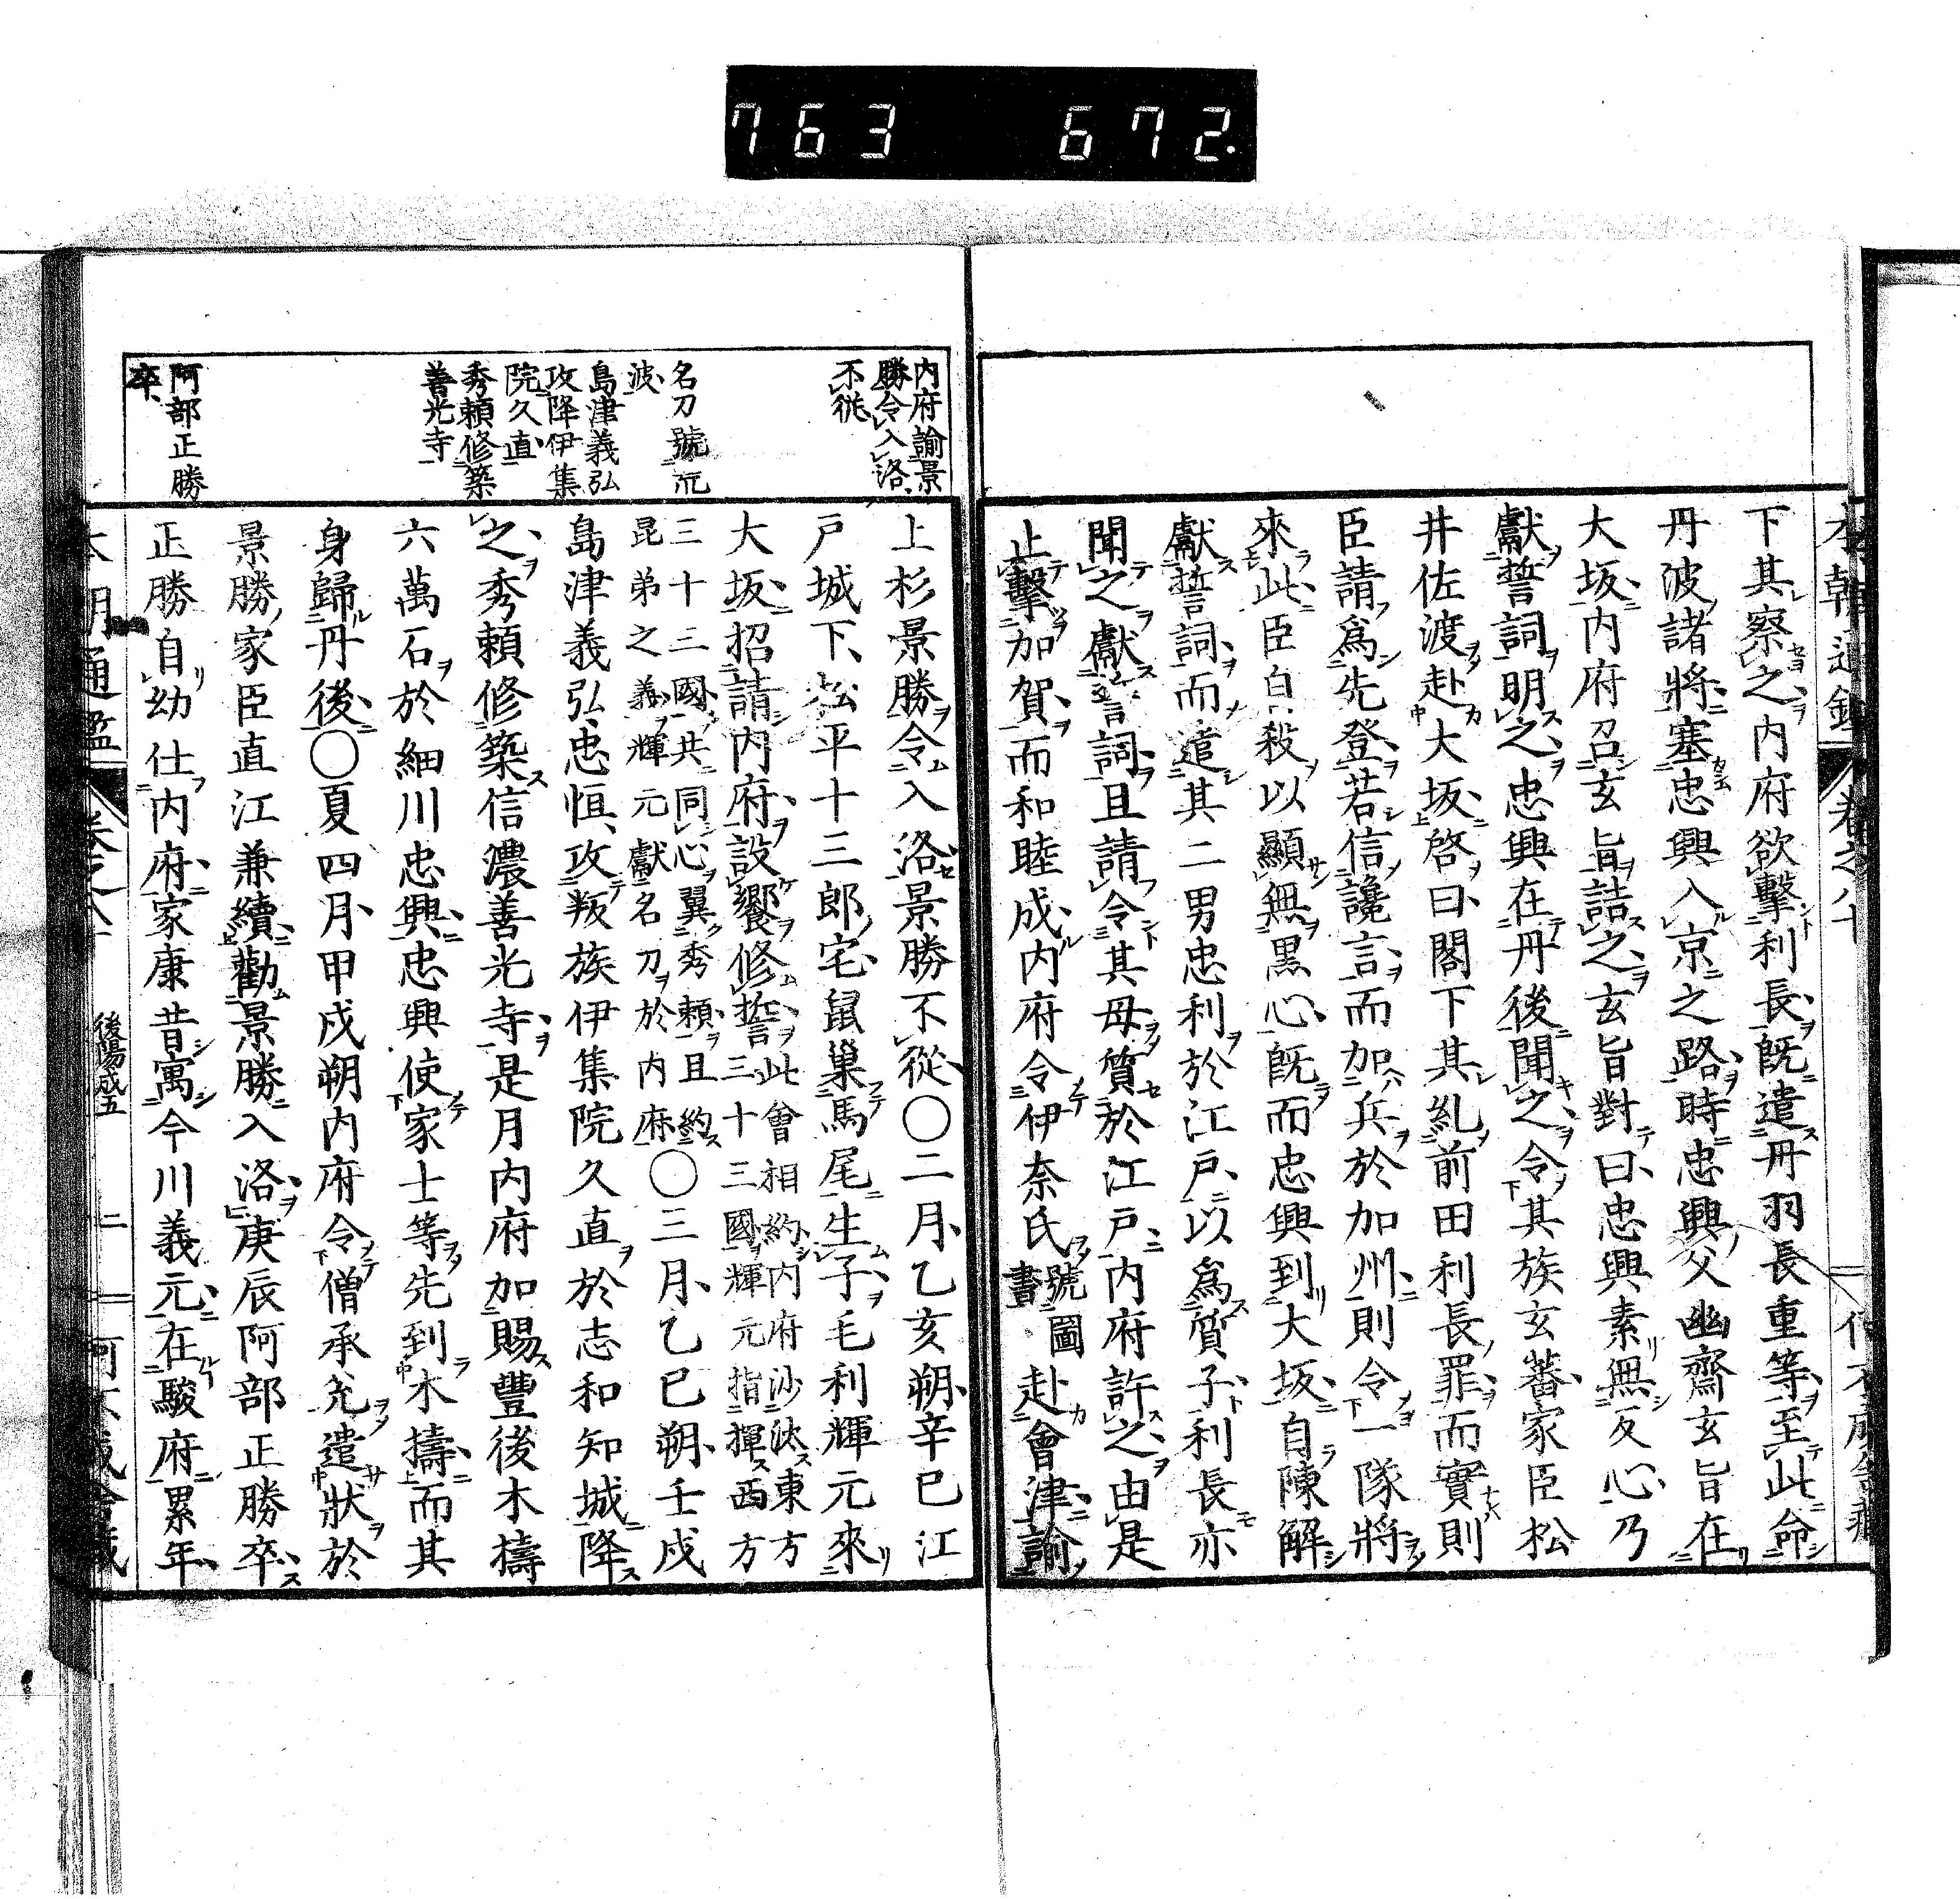 763 672.
下其察之内府欲擊利長既遣丹羽長重等至此命
丹波諸將塞忠興入京之路時忠興父幽齋玄旨在
大坂内府召玄旨詰之玄旨對曰忠興素無反心乃
獻誓詞明之忠興在丹後聞之令其族玄蕃家臣松
井佐渡赴大坂啓曰閤下其糺前田利長罪而實則
臣請爲先登若信讒言而加兵於加州則令一隊將
來此臣自殺以顯無黒心既而忠興到大坂自陳解
獻誓詞而遣其二男忠利於江戸以爲質子利長亦
聞之獻誓詞且請令其母質於江戸内府許之由是
止擊加賀而和睦成内府令伊奈氏號圖書赴會津諭
内府諭景
勝令入洛
不從
名刀號荒
波
島津義弘
攻降伊集
院久直
秀頼修築
善光寺
阿部正勝
卒
上杉景勝令入洛景勝不從〇二月乙亥朔辛巳江
戸城下松平十三郎宅鼠巢馬尾生子毛利輝元來
大坂招請内府設饗修誓此會相約内府沙汰東方三十三國輝元指揮西方
三十三國共同心翼秀頼且約昆弟之義輝元獻名刀於内府〇三月乙巳朔壬戌
島津義弘忠恒攻叛族伊集院久直於志和知城降
之秀頼修築信濃善光寺是月内府加賜豐後木擣
六萬石於細川忠興忠興使家士等先到木擣而其
身歸丹後〇夏四月甲戌朔内府令僧承兊遣狀於
景勝家臣直江兼續勸景勝入洛庚辰阿部正勝卒
正勝自幼仕内府家康昔寓今川義元在駿府累年
後陽成五
二